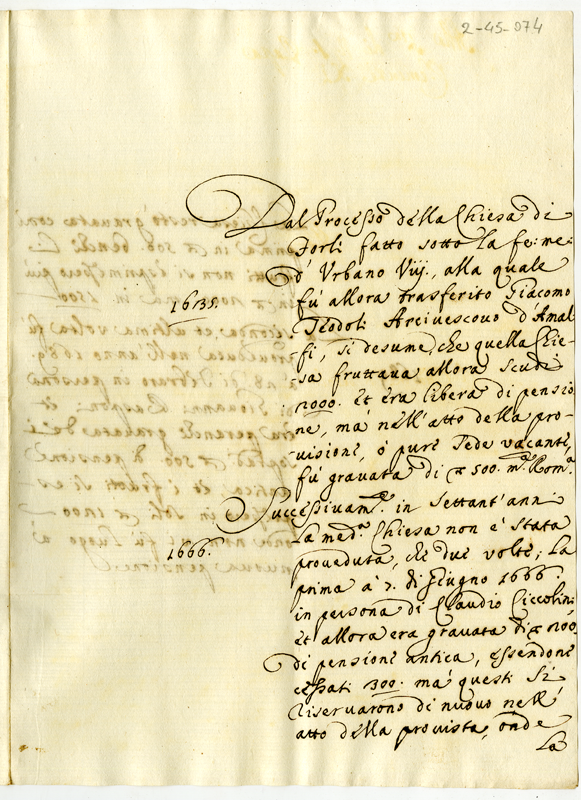 2-45-074
Dal Processo della Chiesa di
Forlì fatto sotto la fe: me:
d'Urbano Viij., alla quale
1635.
fù allora trasferito Giacomo
Teodoli Arcivescovo d'Amal-
fi, si desume, che quella Chie-
sa fruttava allora scudi
2000. et era libera di pensio-
ne, mà nell'atto della pro-
visione, ò pure Sede vacante,
fù gravata di 500. m.ta Rom.a
Successivam.te in settant'anni
la med.a Chiesa non è stata
1666.
proveduta, che due volte; La
prima à 7. di Giugno 1666.
in persona di Claudio Ciccolini
et allora era gravata di 200
di pensione antica, essendone
cessati 300. mà questi si
riservarono di nuovo nell'
atto della provista, onde
La